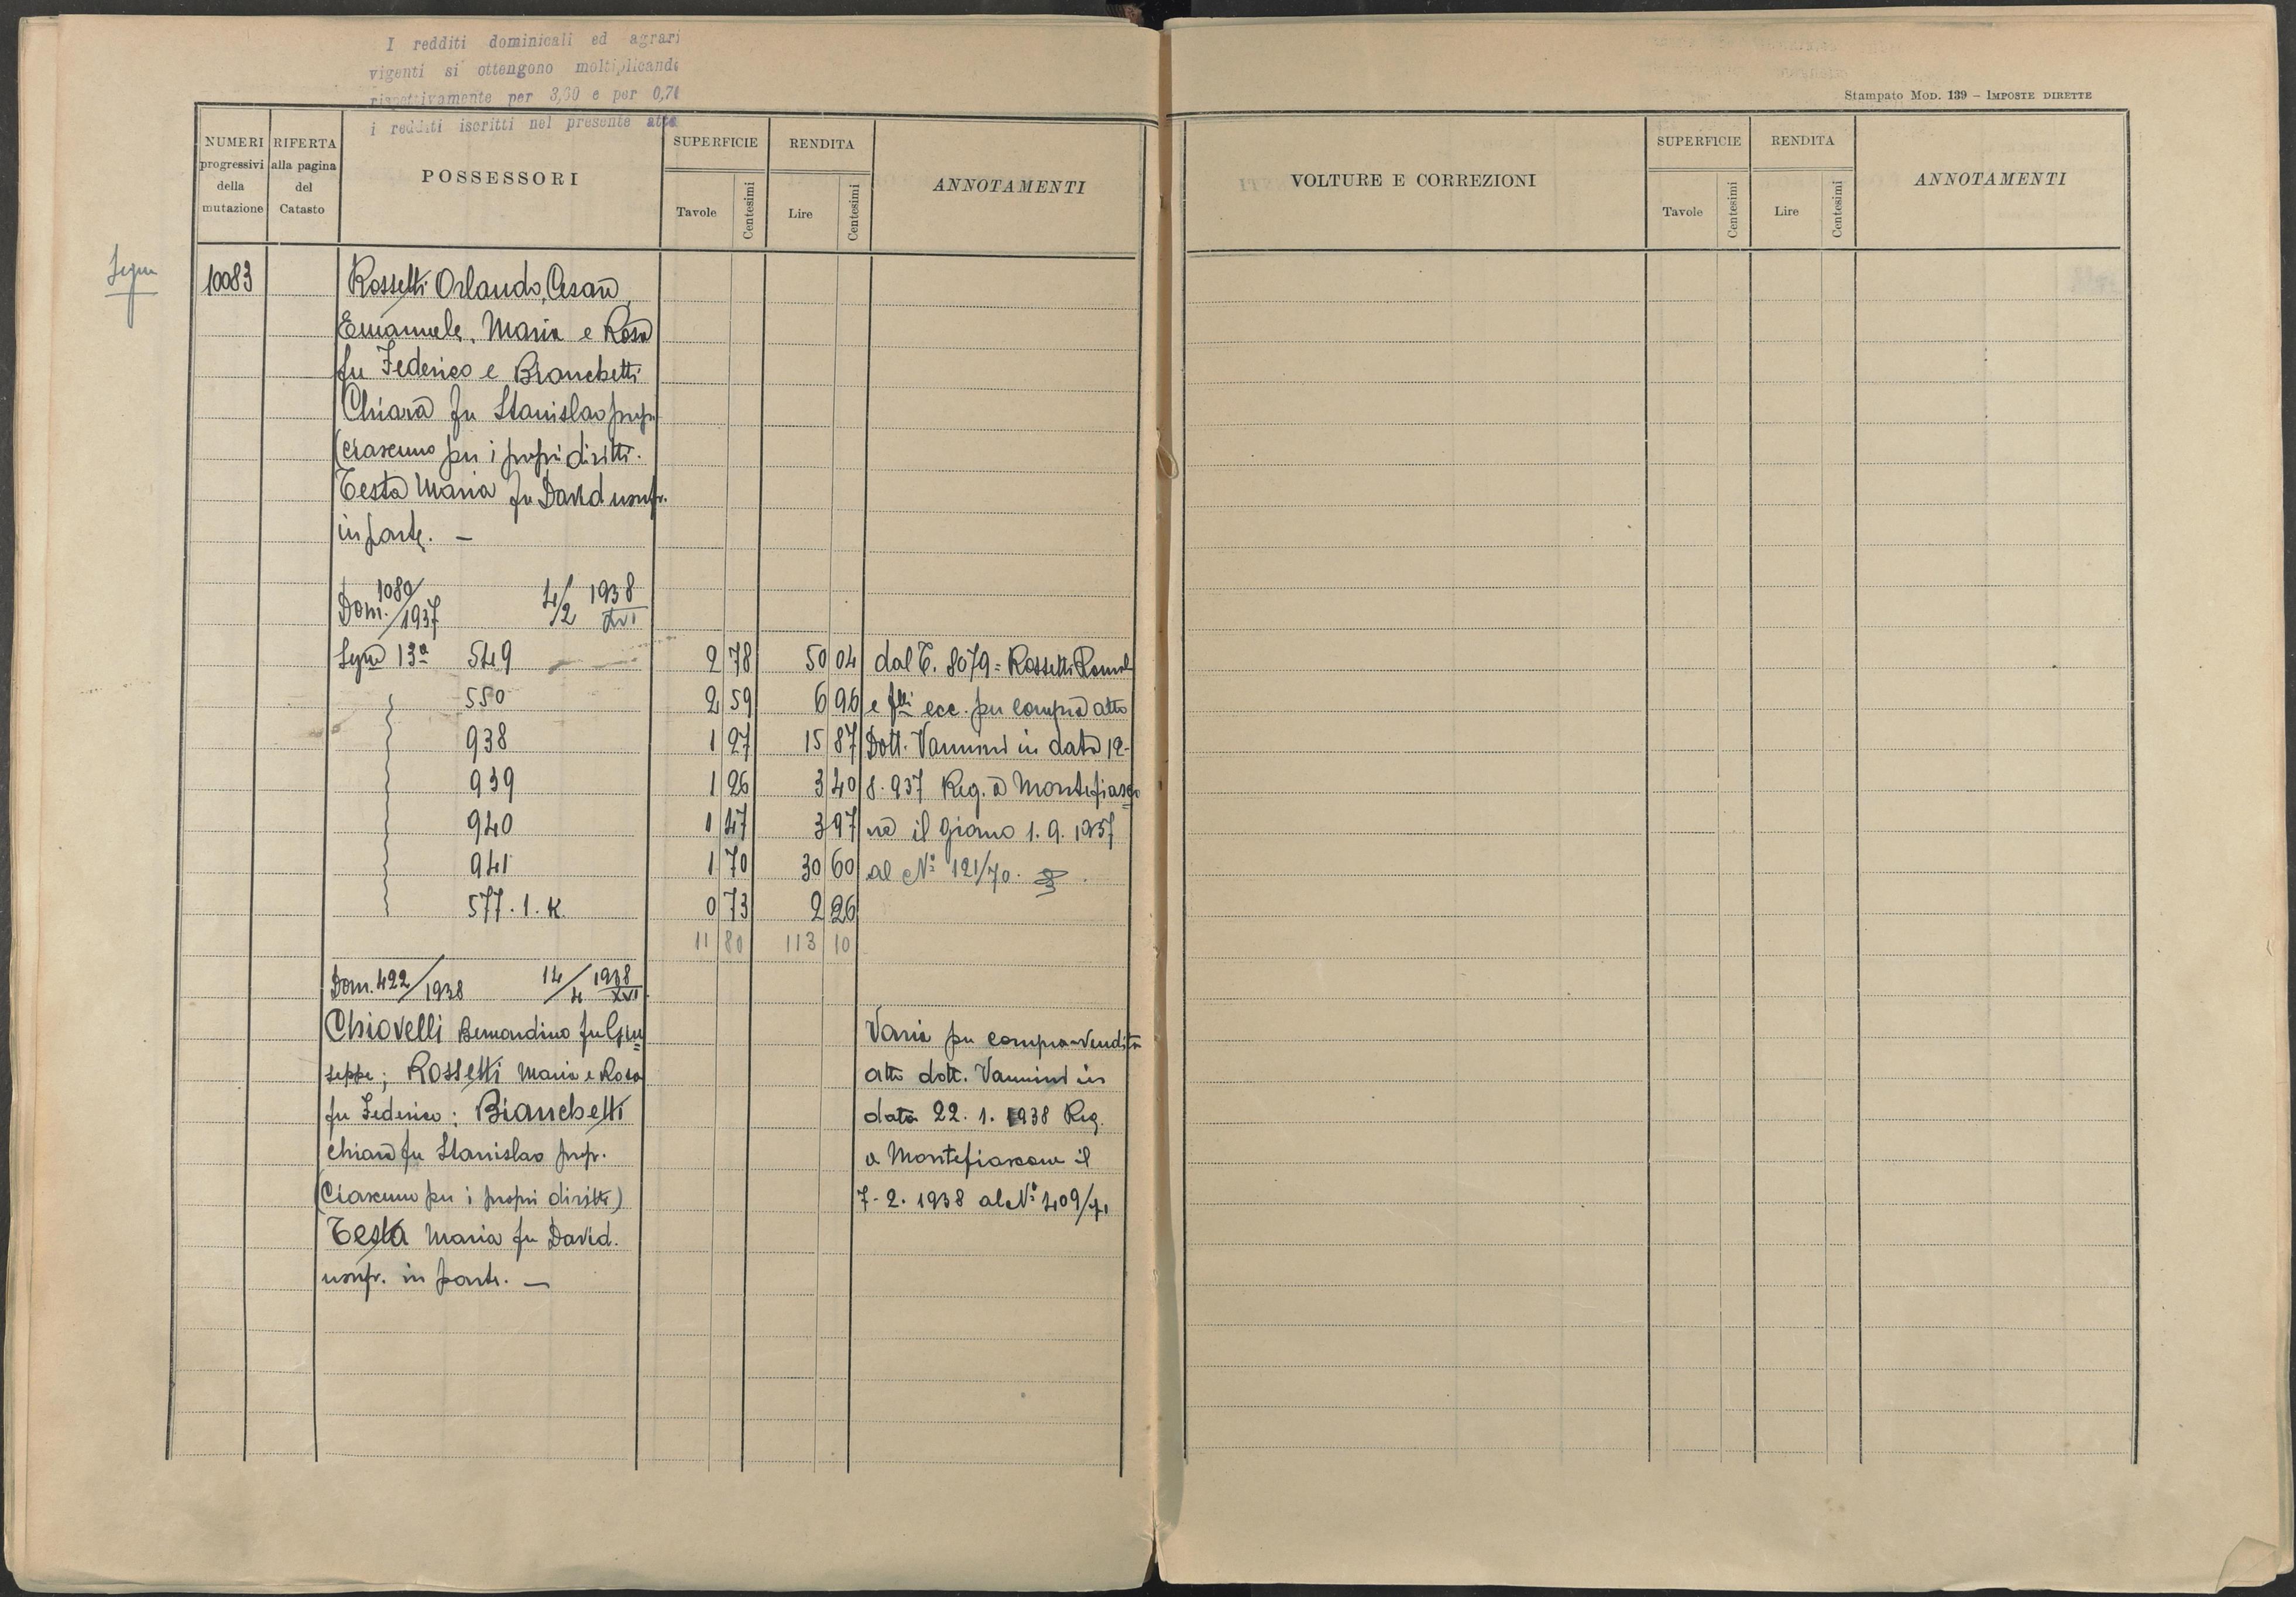 I redditi dominicali ed agrari
vigenti si ottengono moltiplicando
rispettivamente per 3,60 e per 0,70
i redditi iscritti nel presente atto
Stampato Mod. 139 – Imposte dirette
NUMERI progressivi della mutazione
RIFERTA alla pagina del Catasto
POSSESSORI
SUPERFICIE
Tavole
Centesimi
RENDITA
Lire
Centesimi
ANNOTAMENTI
VOLTURE E CORREZIONI
SUPERFICIE
Tavole
Centesimi
RENDITA
Lire
Centesimi
ANNOTAMENTI
10083 Rossetti Orlando, Cesare,
Emanuele, Maria e Rosa
fu Federico e Bianchetti
Chiara fu Stanislao propr.
(ciascuno per i propri diritti.
Testa Maria fu David usufr.
in parte. —
Dom. 1080/1937 4/2 1938 XVI
549 2 78 50 04 dal T. 8079 = Rossetti
550 2 59 6 96 e flli ecc. per compra atto
938 1 27 15 87 Dott. Vannini in data 12-
939 1 26 3 40 8.937 Reg. a Montefiasco
940 1 47 3 97 ne il giorno 1.9.1937
941 1 70 30 60 al N° 121/70.
577.1.K. 0 73 2 26
11 80 113 10
Dom. 422/1938 14/4 1938 XVI
Chiovelli Bernardino fu Giu Varia per compra-vendita
seppe; Rossetti Maria e Rosa atto dott. Vannini in
fu Federico; Bianchetti data 22.1.1938 Reg.
Chiara fu Stanislao propr. a Montefiascone il
(Ciascuno per i propri diritti) 7-2.1938 al N° 409/71
Testa Maria fu David.
usufr. in parte. —